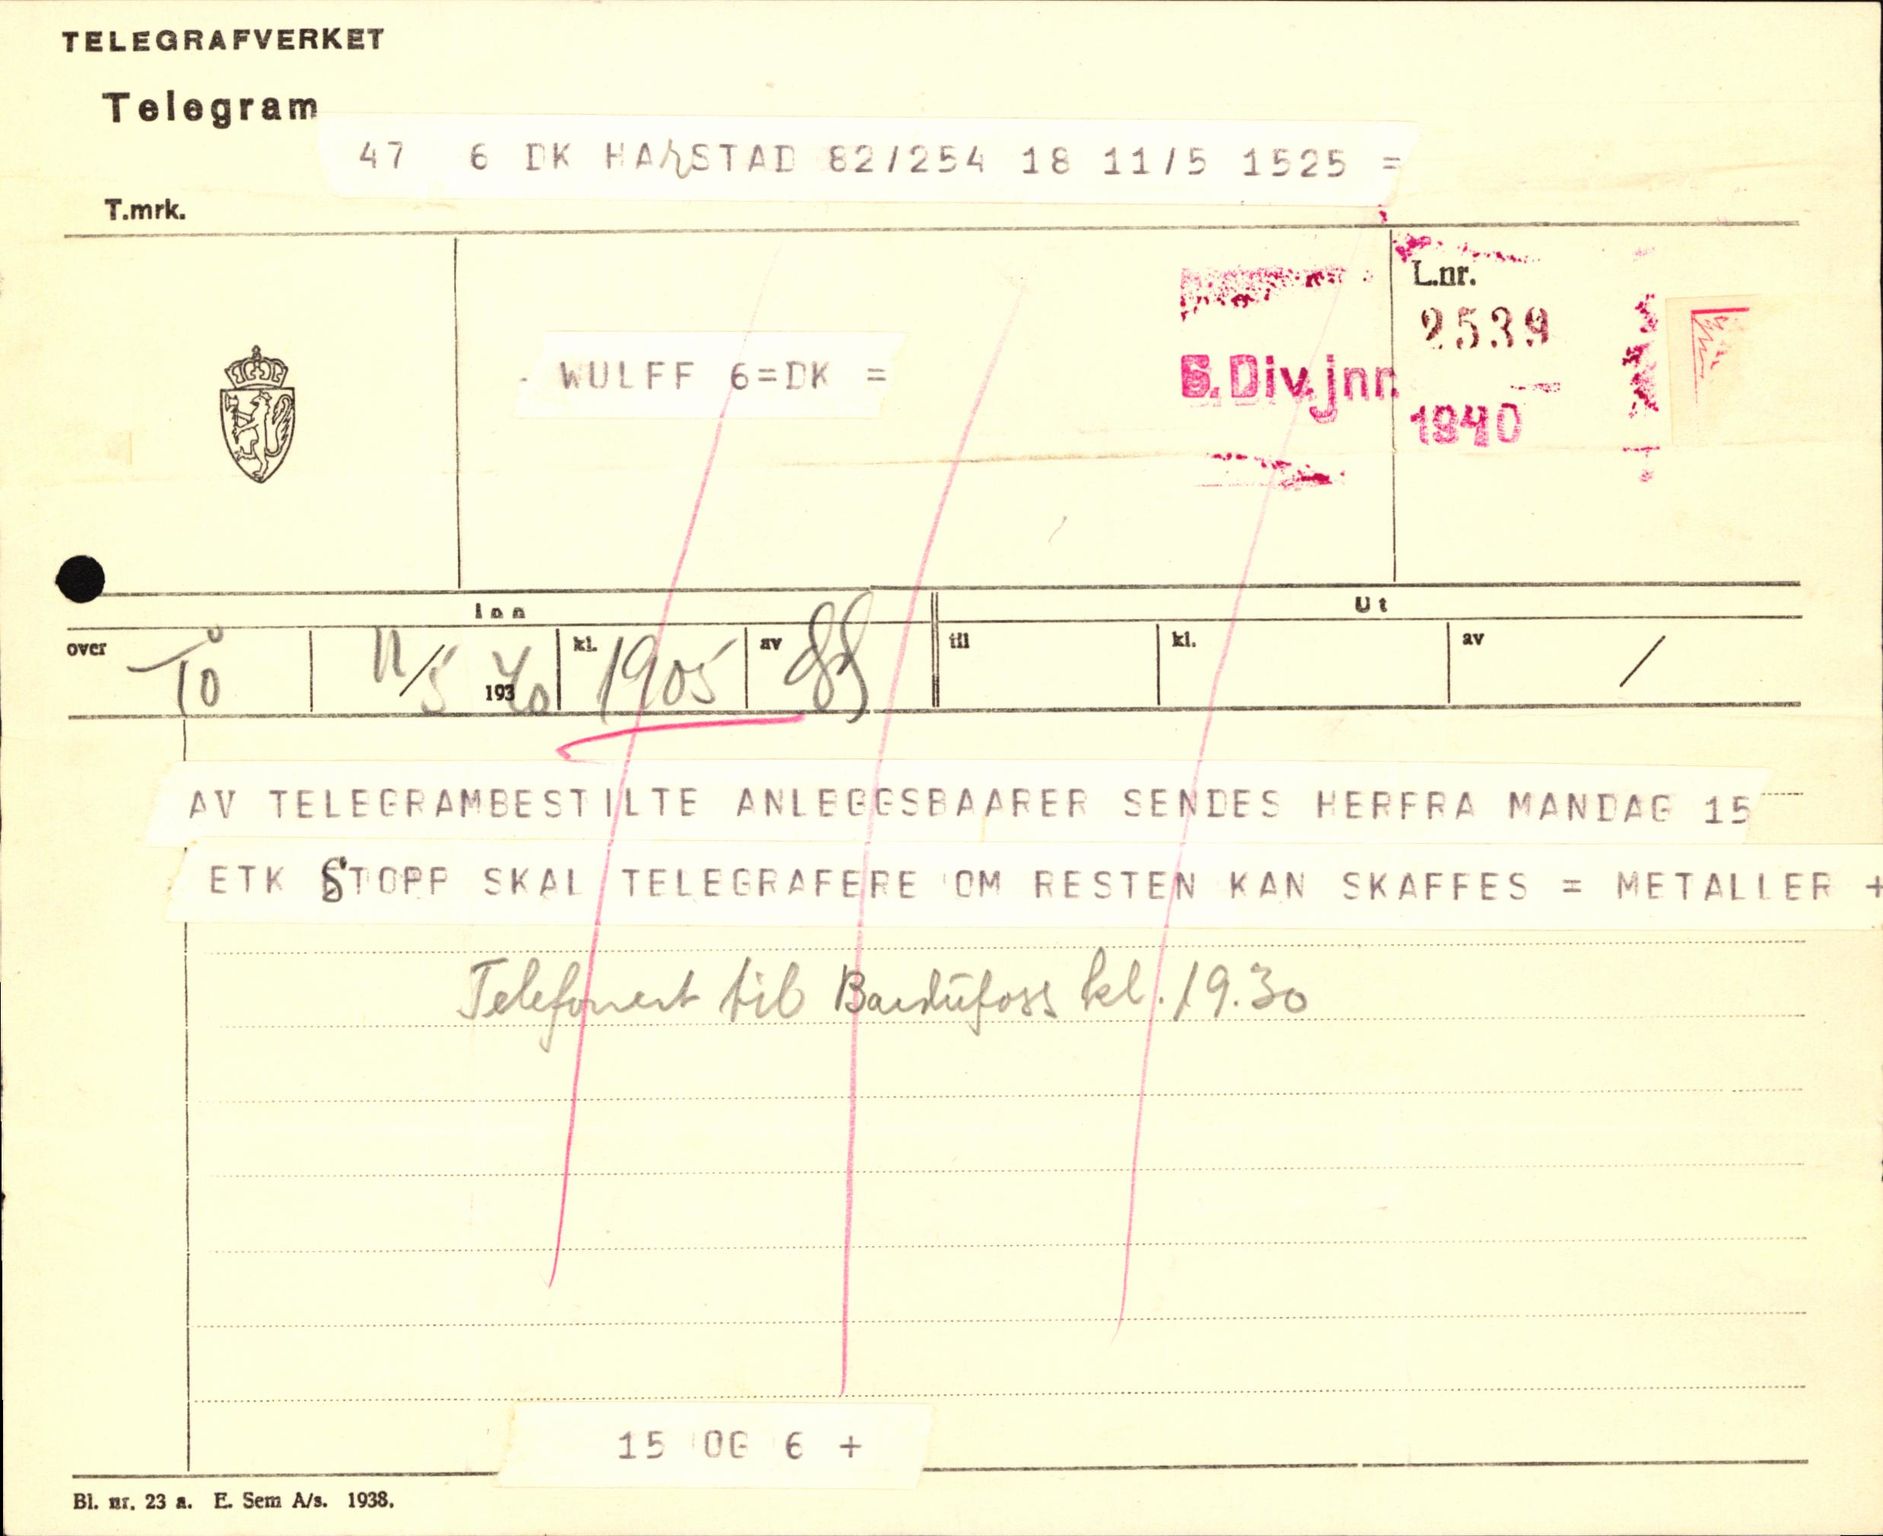 TELEGRAFVERKET
Telegram
47 6 DK HARSTAD 82/254 18 11/5 1525 =
T.mrk.
L.nr.
2539
WULFF 6=DK =
6. Div. jnr.
1940
Inn
Ut
over To 11/5 1940 kl. 1905 av
til kl. av
AV TELEGRAMBESTILTE ANLEGGSBAARER SENDES HERFRA MANDAG 15
ETK STOPP SKAL TELEGRAFERE OM RESTEN KAN SKAFFES = METALLER +
Telefonert til Bardufoss kl. 19.30
15 OG 6 +
Bl. nr. 23 a. E. Sem A/s. 1938.